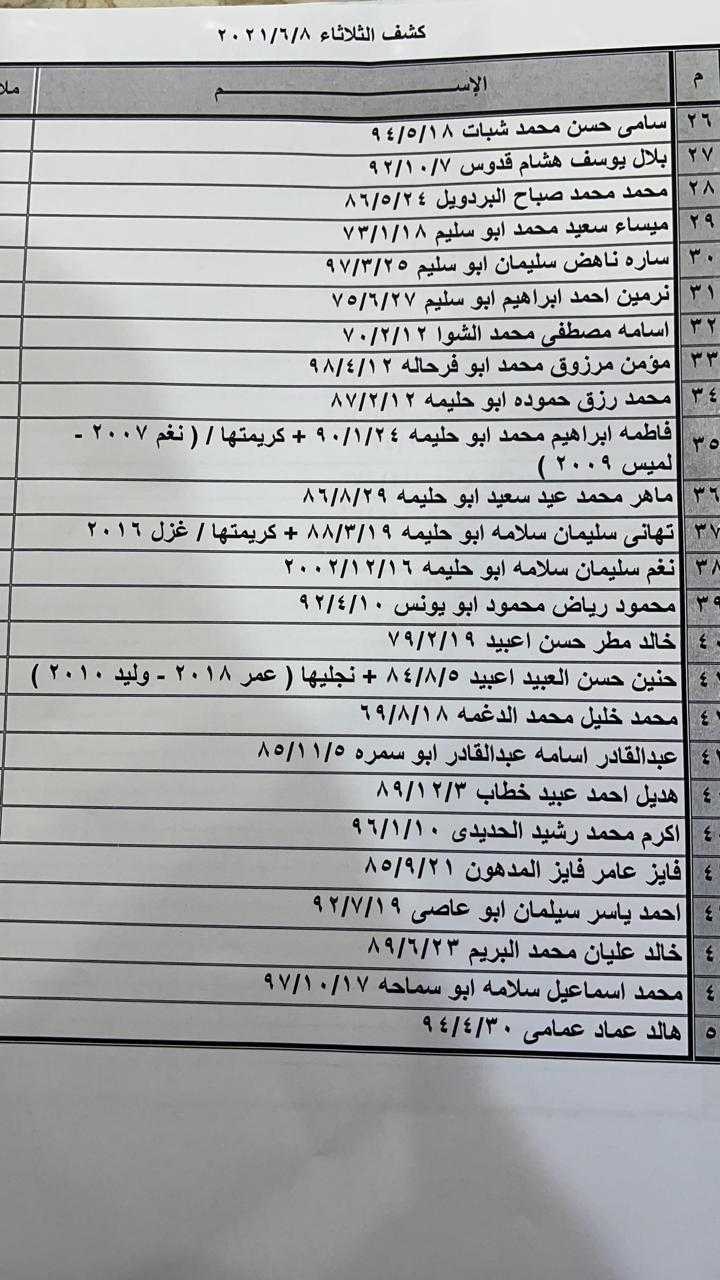 كشف الثلاثاء ٢٠٢١/٦/٨
م الإســــــــم ملا
٢٦ سامى حسن محمد شبات ٩٤/٥/١٨
٢٧ بلال يوسف هشام قدوس ٩٢/١٠/٧
٢٨ محمد محمد صباح البردويل ٨٦/٥/٢٤
٢٩ ميساء سعيد محمد ابو سليم ٧٣/١/١٨
٣٠ ساره ناهض سليمان ابو سليم ٩٧/٣/٢٥
٣١ نرمين احمد ابراهيم ابو سليم ٧٥/٦/٢٧
٣٢ اسامه مصطفى محمد الشوا ٧٠/٢/١٢
٣٣ مؤمن مرزوق محمد ابو فرحاله ٩٨/٤/١٢
٣٤ محمد رزق حموده ابو حليمه ٨٧/٢/١٢
٣٥ فاطمه ابراهيم محمد ابو حليمه ٩٠/١/٢٤ + كريمتها / ( نغم ٢٠٠٧ -
لميس ٢٠٠٩ )
٣٦ ماهر محمد عيد سعيد ابو حليمه ٨٦/٨/٢٩
٣٧ تهانى سليمان سلامه ابو حليمه ٨٨/٣/١٩ + كريمتها / غزل ٢٠١٦
٣٨ نغم سليمان سلامه ابو حليمه ٢٠٠٢/١٢/١٦
٣٩ محمود رياض محمود ابو يونس ٩٢/٤/١٠
٤ خالد مطر حسن اعبيد ٧٩/٢/١٩
٤ حنين حسن العبيد اعبيد ٨٤/٨/٥ + نجليها ( عمر ٢٠١٨ - وليد ٢٠١٠ )
٤ محمد خليل محمد الدغمه ٦٩/٨/١٨
٤ عبدالقادر اسامه عبدالقادر ابو سمره ٨٥/١١/٥
٤ هديل احمد عبيد خطاب ٨٩/١٢/٣
٤ اكرم محمد رشيد الحديدى ٩٦/١/١٠
٤ فايز عامر فايز المدهون ٨٥/٩/٢١
٤ احمد ياسر سيلمان ابو عاصى ٩٢/٧/١٩
٤ خالد عليان محمد البريم ٨٩/٦/٢٣
٤ محمد اسماعيل سلامه ابو سماحه ٩٧/١٠/١٧
٥ هالد عماد عمامى ٩٤/٤/٣٠